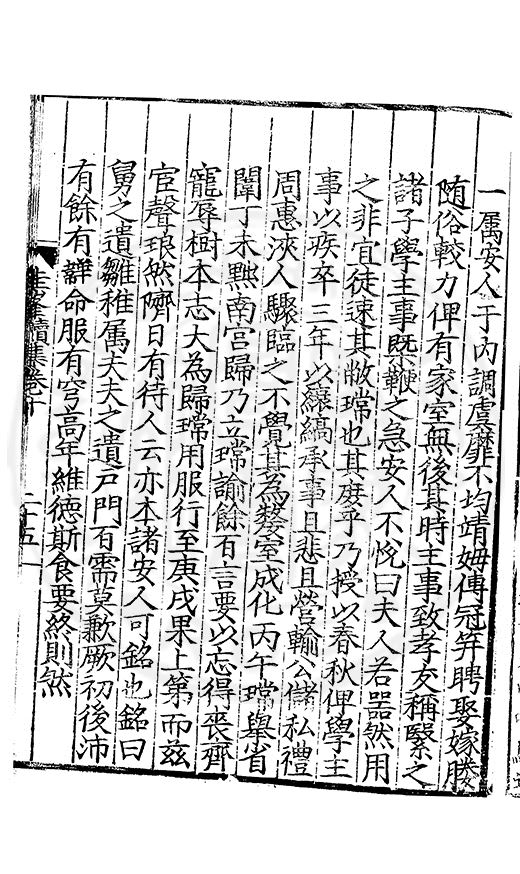 一属安人于内調虞靡不均靖姆傅冠笄聘娶嫁媵
随俗較力俾有家室無後其時主事致孝友稱緊之
諸子學主事槩鞭之急安人不悅曰夫人若器然用
之非宜徒速其敝璫也其庶乎乃授以春秋俾學主
事以疾卒三年以縗縞承事且悲且營輸公儲私禮
周惠浹人驟臨之不覺其為嫠室成化丙午璫舉省
闈丁未黜南宮歸乃立璫諭餘百言要以忘得喪齊
寵辱樹本志大為歸璫用服行至庚戌果上第而茲
官聲琅然隮日有待人云亦本諸安人可銘也銘曰
舅之遺雛稚属夫夫之遺戸門百需莫歉厥初後沛
有餘有群命服有穹高年維德斯食要終則然
續集卷十
二十五